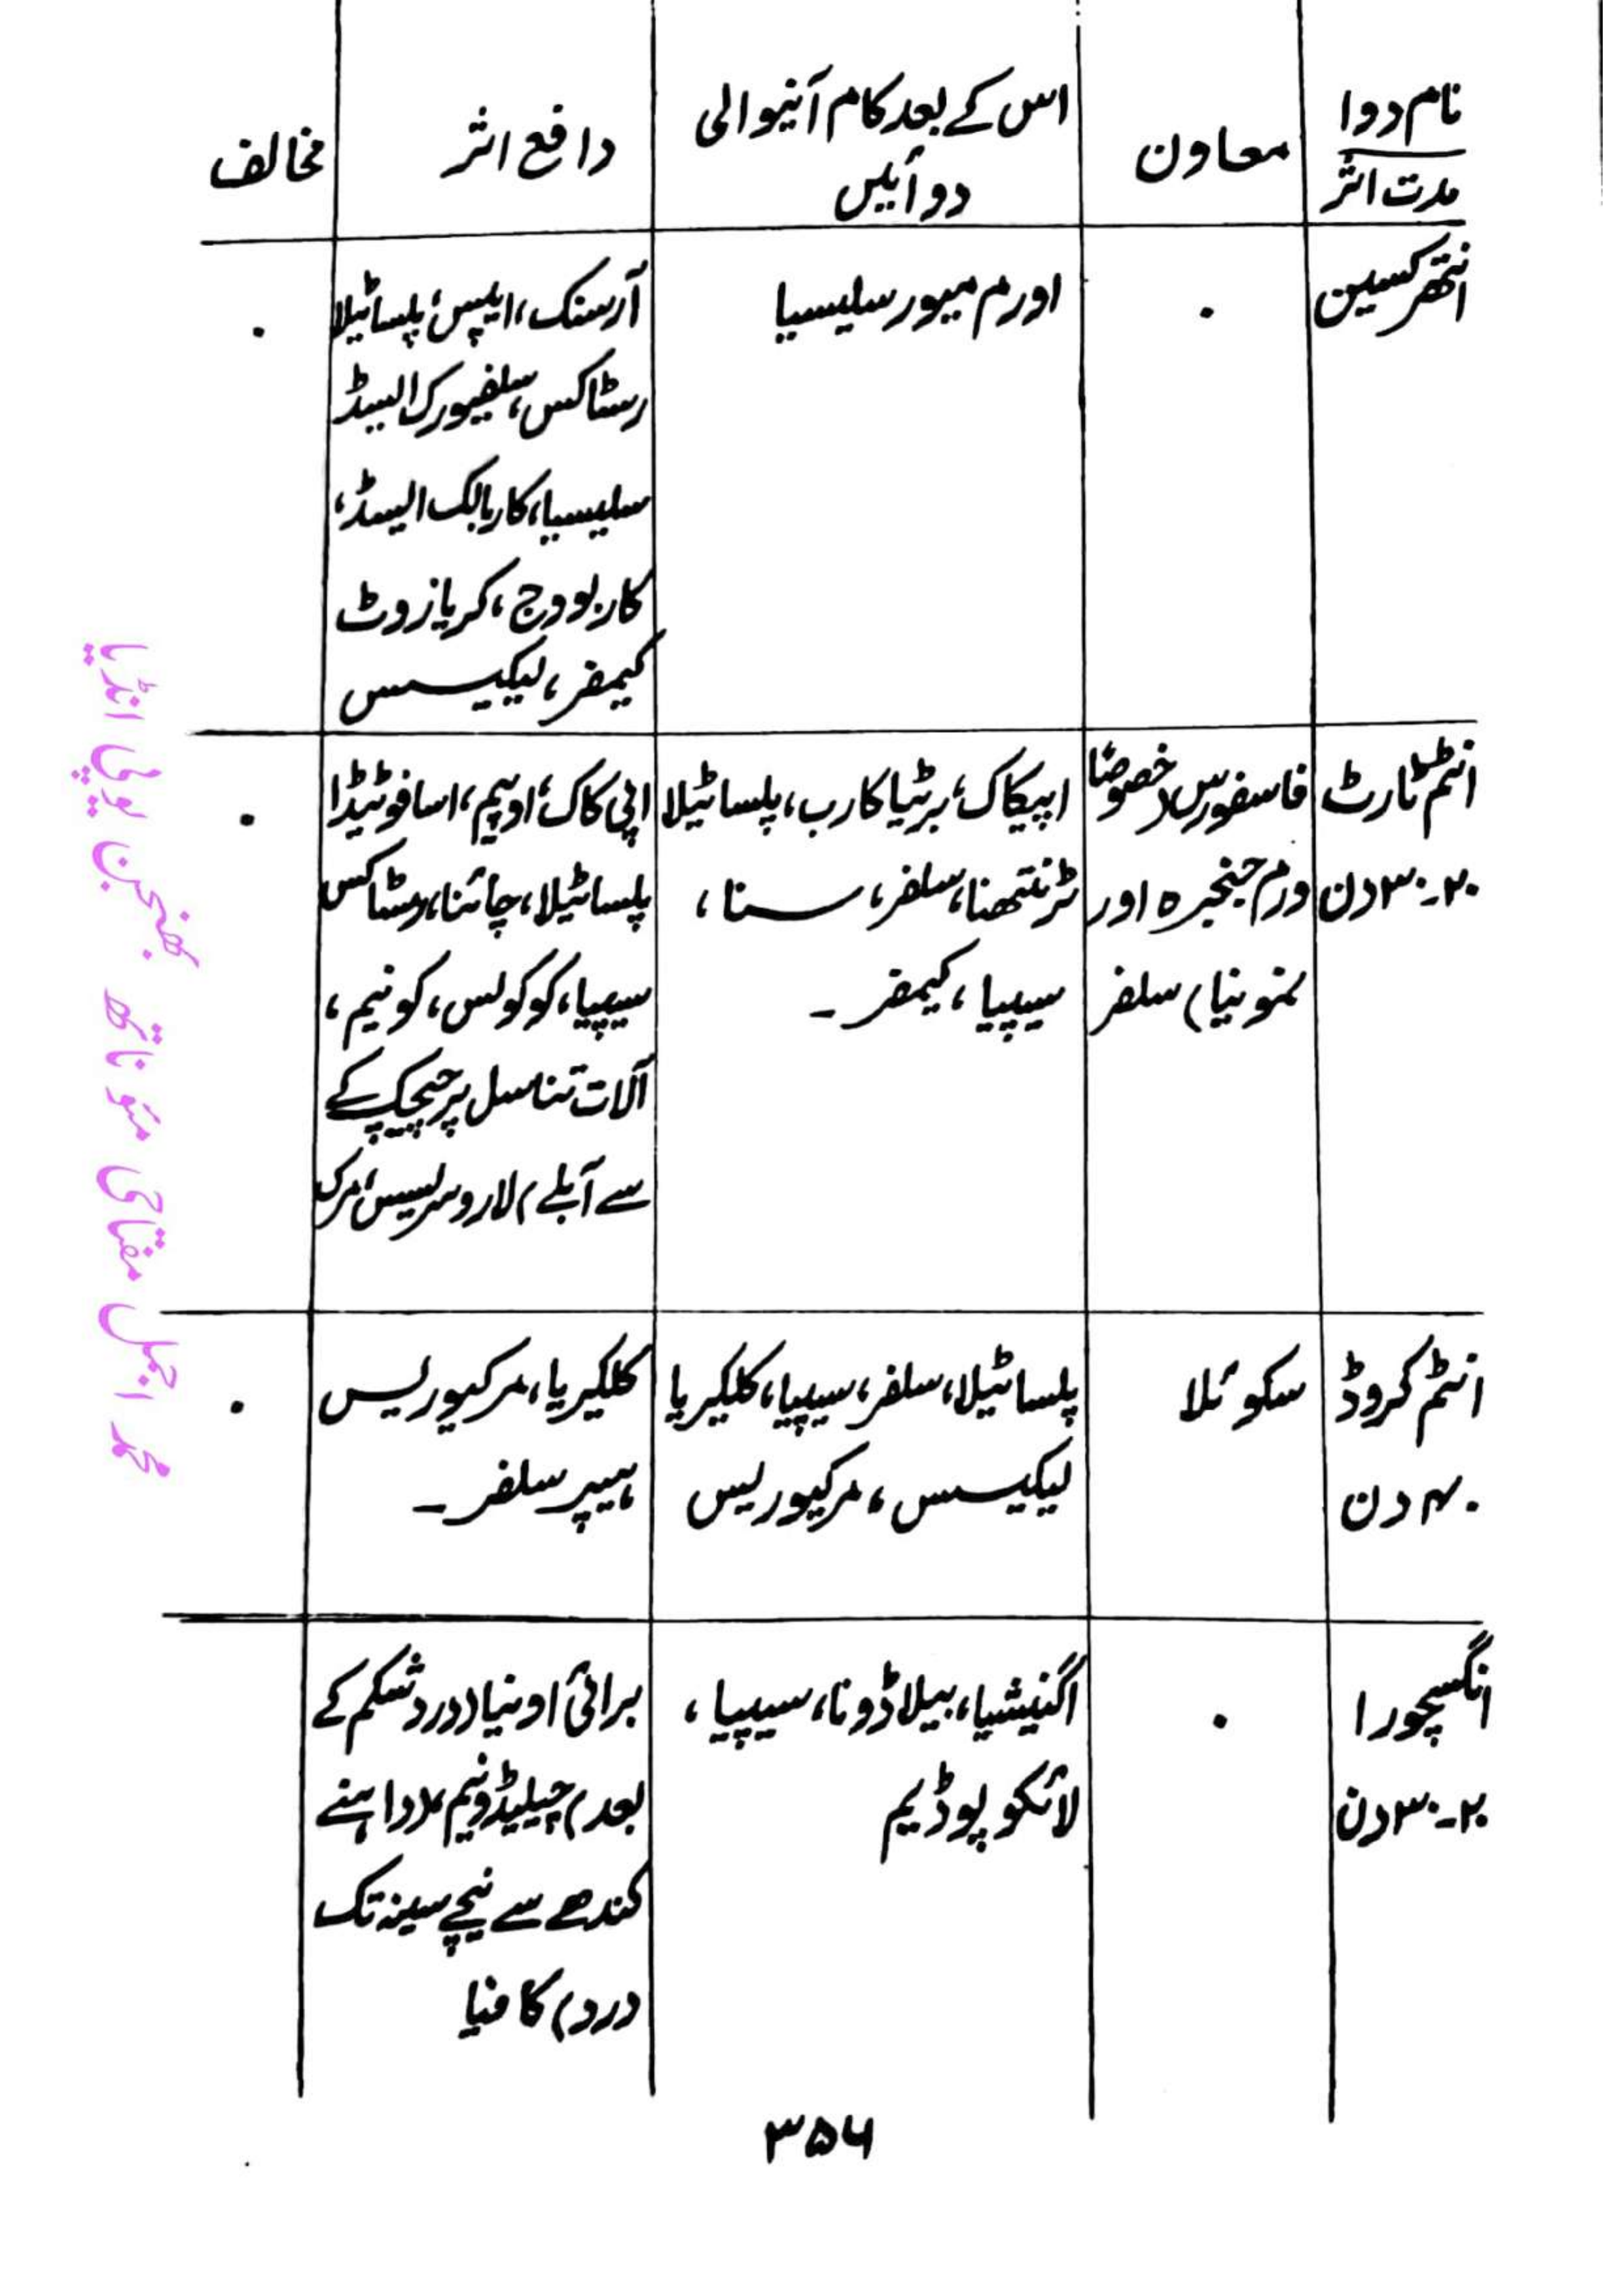 نام دوا
مدت اثر
معاون
اس کے بعد کام آنیوالی
دوائیں
دافع اثر
مخالف
انتھرکسین
۰
اورم میور سلیسیا
آرسنک، ایپس، پلساٹیلا
رسٹاکس، سلفیورک ایسڈ
سلیسیا، کاربالک ایسڈ،
کاربووج، کریازوٹ
کیمفر، لیکیسس
۰
انٹم ٹارٹ
۲۰-۳۰ دن
فاسفورس (خصوصاً
ورم حنجرہ اور
نمونیا) سلفر
اپیکاک، برٹیا کارب، پلساٹیلا
ٹرنتھنا، سلفر، سنا،
سیپیا، کیمفر۔
اپی کاک، اوپیم، اسافوٹیڈا
پلساٹیلا، چائنا، رسٹاکس
سیپیا، کوکولس، کونیم،
آلات تناسل پر چیچک کے
سے آبلے) لاروسریسس، مرک
۰
انٹم کروڈ
۴۰ دن
سکوئلا
پلساٹیلا، سلفر، سیپیا، کلکیریا
لیکیسس، مرکیوریس
کلکیریا، مرکیوریس
ہیپر سلفر۔
۰
انگسچورا
۲۰-۳۰ دن
۰
اگنیشیا، بیلاڈونا، سیپیا،
لائکوپوڈیم
برائی اونیا (درد شکم کے
بعد) چیلیڈونیم (داہنے
کندھے سے نیچے سینہ تک
درد) کافیا
۳۵۶
محمد اجمل مفتاحی مئو ناتھ بھنجن یوپی انڈیا